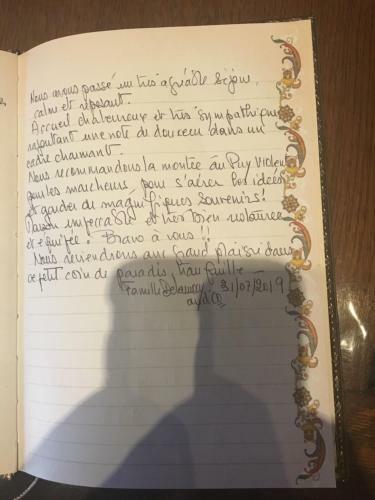 Nous avons passé un très agréable séjour,
calme et reposant.
Accueil chaleureux et très sympathique
rajoutant une note de douceur dans un
cadre charmant.
Nous recommandons la montée au Puy Violent
pour les marcheurs, pour s'aérer les idées
et garder de magnifiques souvenirs!
Maison impeccable et très bien restaurée
et équipée. Bravo à vous !!
Nous reviendrons avec grand plaisir dans
ce petit coin de paradis, tranquille
Famille 31/07/2019